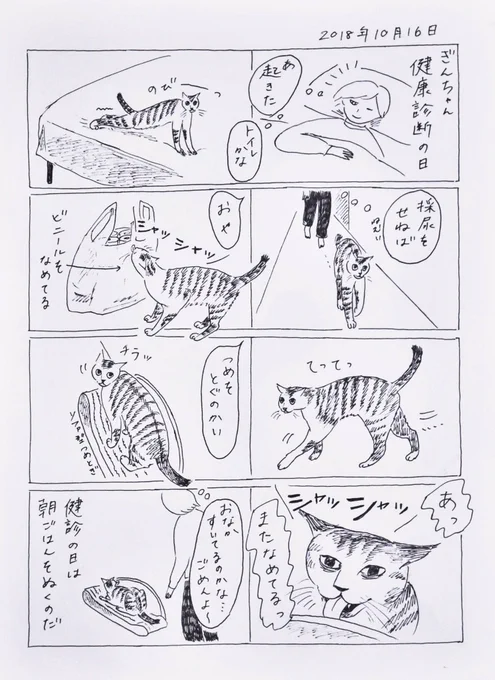 2018年10月16日
ぎんちゃん
健康診断の日
あ
起きた
のびーっ
トイレ
かな
採尿を
せねば
おや
シャッシャッ
ビニールを
なめてる
てってっ
つめを
とぐのかい
チラッ
ソファ型つめとぎ
あっ
シャッシャッ
またなめてるっ
おなか
すいてるのかな…
ごめんよー
健診の日は
朝ごはんをぬくのだ